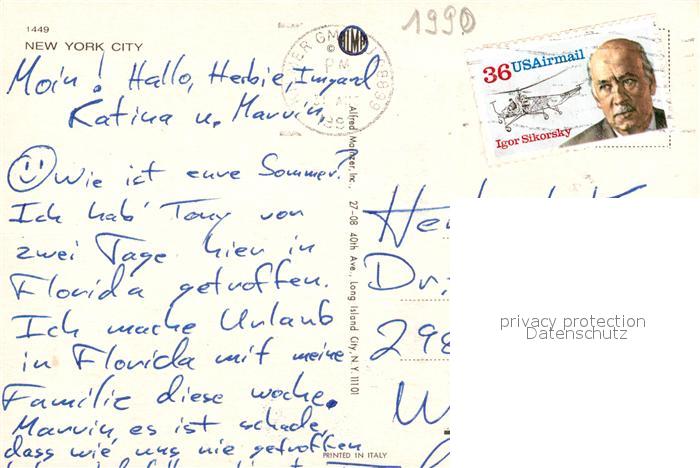 1449
NEW YORK CITY
1990
ALMA
PM
36 USAirmail
Igor Sikorsky
Moin! Hallo, Herbie, Irmgard
Katina u. Marvin,
Wie ist eure Sommer?
Ich hab' Tony vor
zwei Tage hier in
Florida getroffen.
Ich mache Urlaub
in Florida mit meine
Familie diese woche.
Marvin, es ist schade,
dass wie uns nie getroffen
Alfred Mainzer, Inc., 27-08 40th Ave., Long Island City, N.Y. 11101
PRINTED IN ITALY
He
Dr.
298
W
privacy protection
Datenschutz